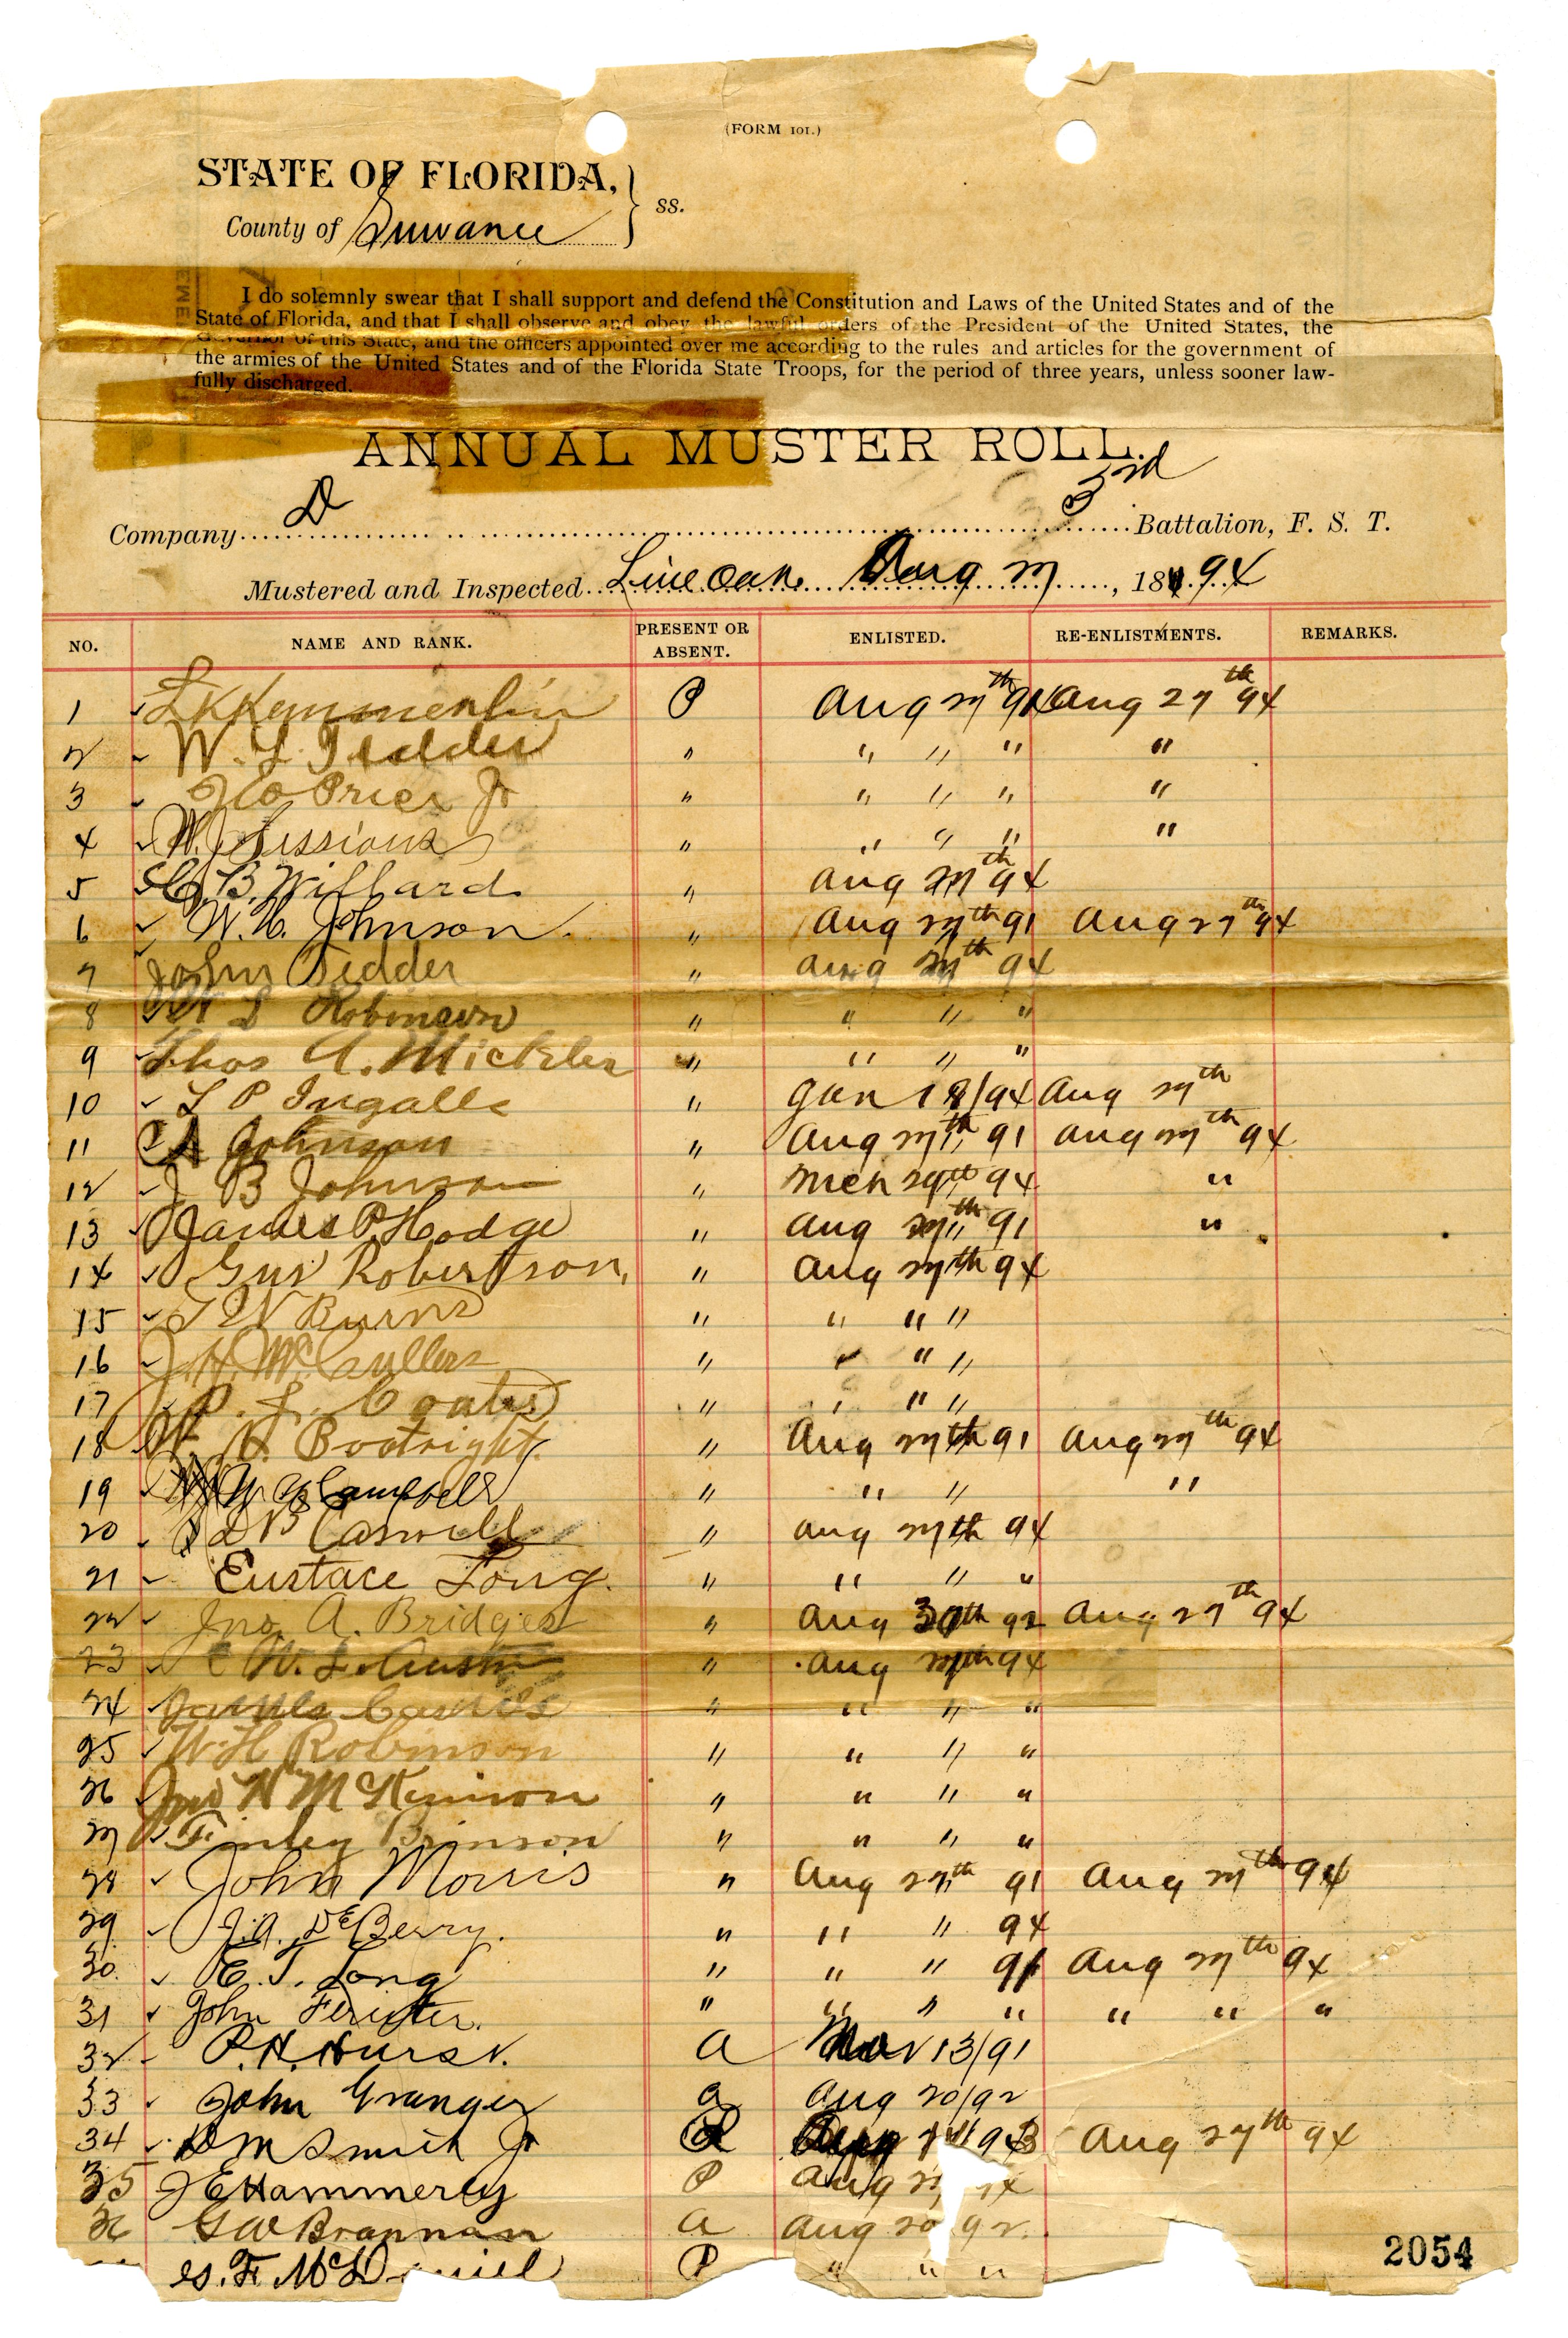 (FORM 101.)
STATE OF FLORIDA,
County of Suwanee } ss.
I do solemnly swear that I shall support and defend the Constitution and Laws of the United States and of the
State of Florida, and that I shall observe and obey the lawful orders of the President of the United States, the
Governor of this State, and the officers appointed over me according to the rules and articles for the government of
the armies of the United States and of the Florida State Troops, for the period of three years, unless sooner law-
fully discharged.
ANNUAL MUSTER ROLL.
Company D 3rd Battalion, F. S. T.
Mustered and Inspected Live Oak Aug 27, 1894
NO. NAME AND RANK. PRESENT OR ABSENT. ENLISTED. RE-ENLISTMENTS. REMARKS.
1 L K Kemmerlin P Aug 27th 91 Aug 27th 94
2 W. L Tedder " " " " "
3 Price Jr " " " " "
4 W. J Sessions " " " " "
5 B. Willard " Aug 27th 94
6 W. H. Johnson " Aug 27th 91 Aug 27th 94
7 John Tedder " Aug 27th 94
8 L Robinson " " " "
9 Thos A. Mickler " " " "
10 L P Ingalls " Jan 18/94 Aug 27th
11 A Johnson " Aug 27th 91 Aug 27th 94
12 J B Johnson " Mch 29th 94 "
13 James P. Hodge " Aug 27th 91 "
14 Gus Robertson " Aug 27th 94
15 T W Burns " " " "
16 J. H. McCullers " " " "
17 P. L. Coates " " " "
18 W. H. Bootright " Aug 27th 91 Aug 27th 94
19 Campbell " " " "
20 D B Carswell " Aug 27th 94
21 Eustace Long " " " "
22 Jno. A. Bridges " Aug 30th 92 Aug 27th 94
23 " Aug 27th 94
24 James " " " "
25 W. H Robinson " " " "
26 Jno H McKinnon " " " "
27 Finley Brinson " " " "
28 John Morris " Aug 27th 91 Aug 27th 94
29 J. A. DeBerry. " " " 94
30 E. T. Long " " " 91 Aug 27th 94
31 John " " " " " " "
32 P. H. Hurst. A Nov 13/91
33 John Granger a Aug 20/92
34 D M Smith Jr P 93 Aug 27th 94
35 J E Hammerly P Aug
36 G W Brannan a Aug 20 92
F. McD niel P " " "
2054